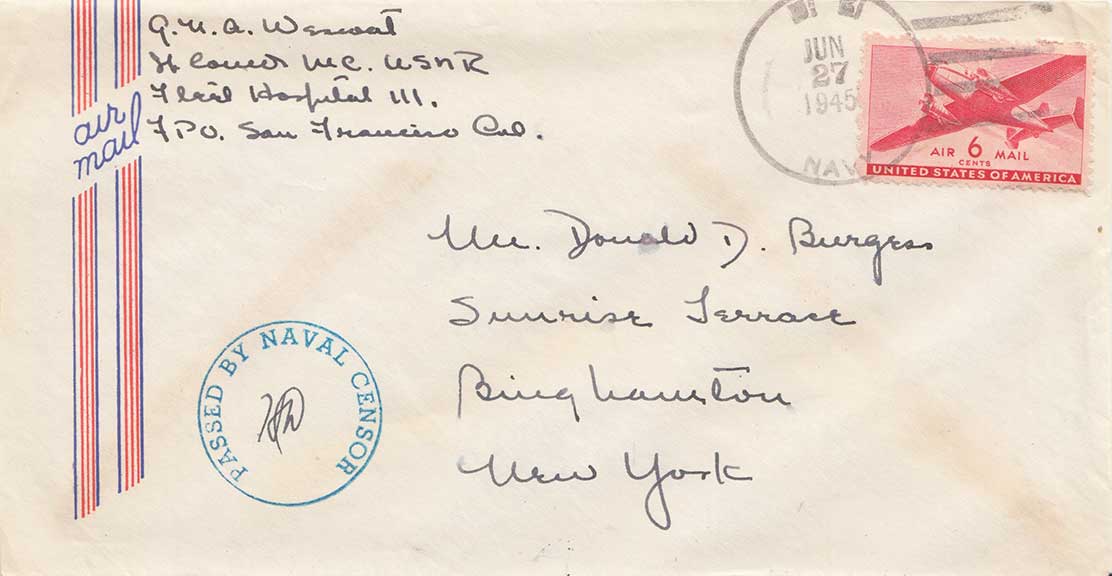 G. N. A. Wescoat
Lt Comdr MC. USNR
Fleet Hospital 111.
FPO. San Francisco Cal.
air
mail
JUN
27
1945
NAVY
AIR 6 MAIL
CENTS
UNITED STATES OF AMERICA
Mr. Donald D. Burgess
Sunrise Terrace
Binghamton
New York
PASSED BY NAVAL CENSOR